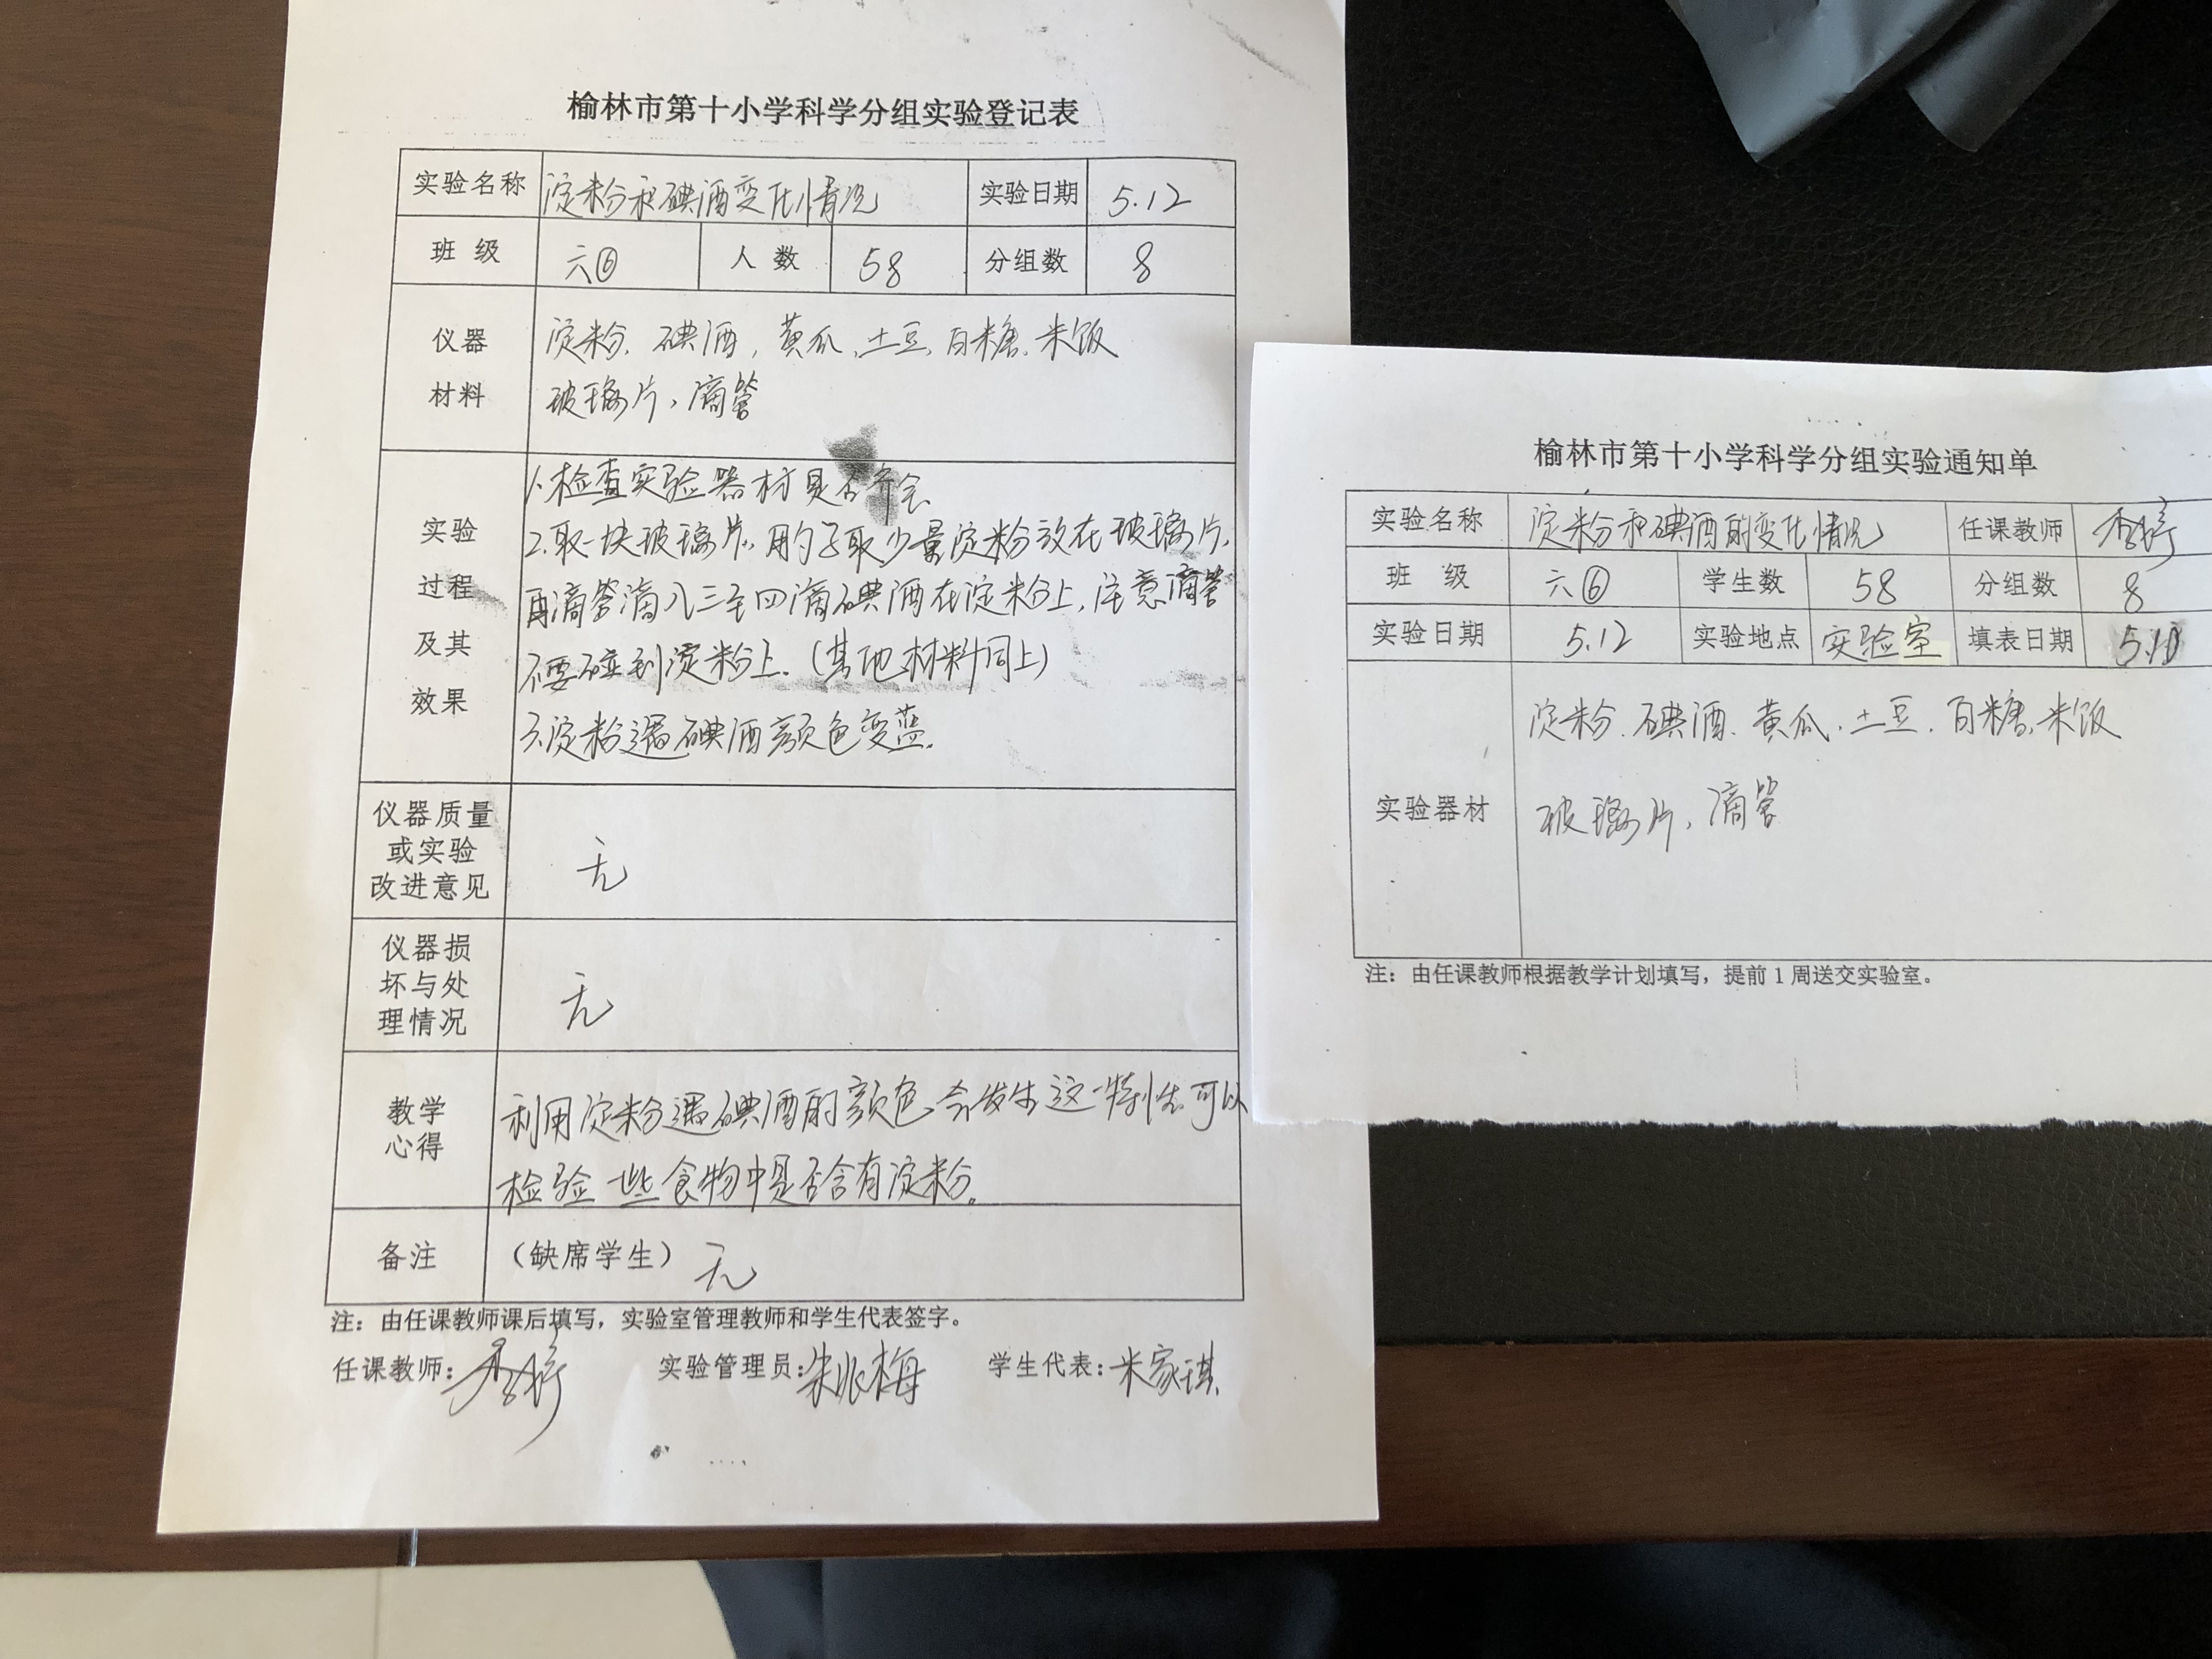 榆林市第十小学科学分组实验登记表
实验名称 淀粉和碘酒变化情况 实验日期 5.12
班 级 六⑥ 人 数 58 分组数 8
仪器
材料
淀粉、碘酒，黄瓜、土豆、白糖、米饭
玻璃片，滴管
实验
过程
及其
效果
1.检查实验器材是否齐全
2.取一块玻璃片，用勺子取少量淀粉放在玻璃片，
再滴管滴入三至四滴碘酒在淀粉上，注意滴管
不要碰到淀粉上.（其他材料同上）
3.淀粉遇碘酒颜色变蓝.
仪器质量
或实验
改进意见
无
仪器损
坏与处
理情况
无
教学
心得
利用淀粉遇碘酒的颜色会发生这一特性可以
检验一些食物中是否含有淀粉。
备注 （缺席学生） 无
注：由任课教师课后填写，实验室管理教师和学生代表签字。
任课教师： 实验管理员：朱 梅 学生代表：米家琪
榆林市第十小学科学分组实验通知单
实验名称 淀粉和碘酒的变化情况 任课教师
班 级 六⑥ 学生数 58 分组数 8
实验日期 5.12 实验地点 实验室 填表日期 5.10
实验器材
淀粉、碘酒、黄瓜、土豆、白糖、米饭
玻璃片、滴管
注：由任课教师根据教学计划填写，提前1周送交实验室。